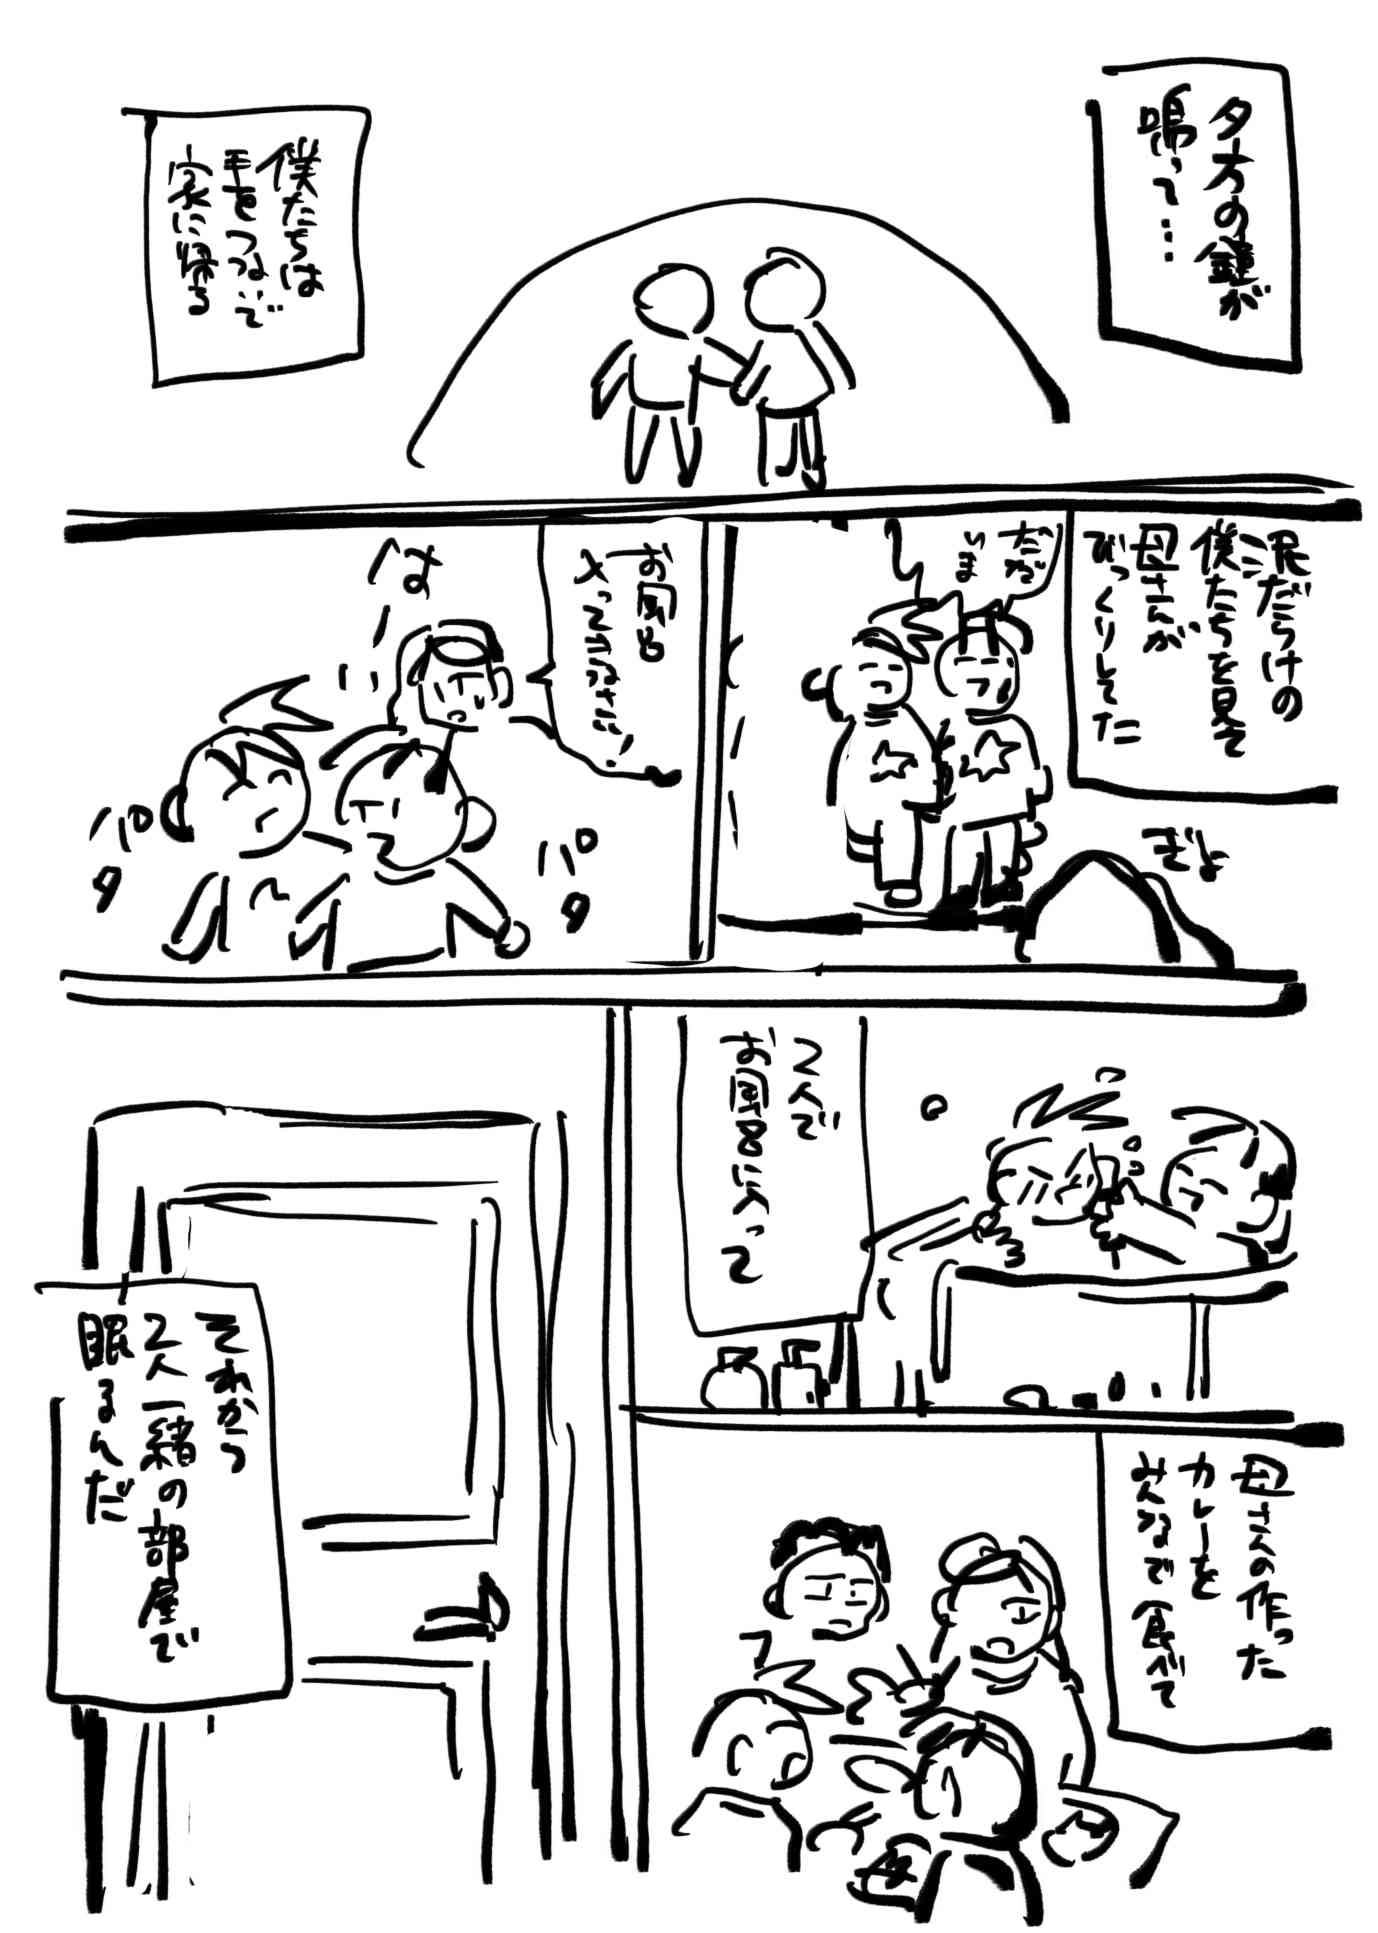 夕方の鐘が
鳴って…
僕たちは
手をつないで
家に帰る
泥だらけの
僕たちを見て
母さんが
びっくりしてた
ただ
いま
ぎょ
お風呂
入ってきなさい!
はーい
パタ
パタ
2人で
お風呂に入って
母さんの作った
カレーを
みんなで食べて
それから
2人一緒の部屋で
眠るんだ